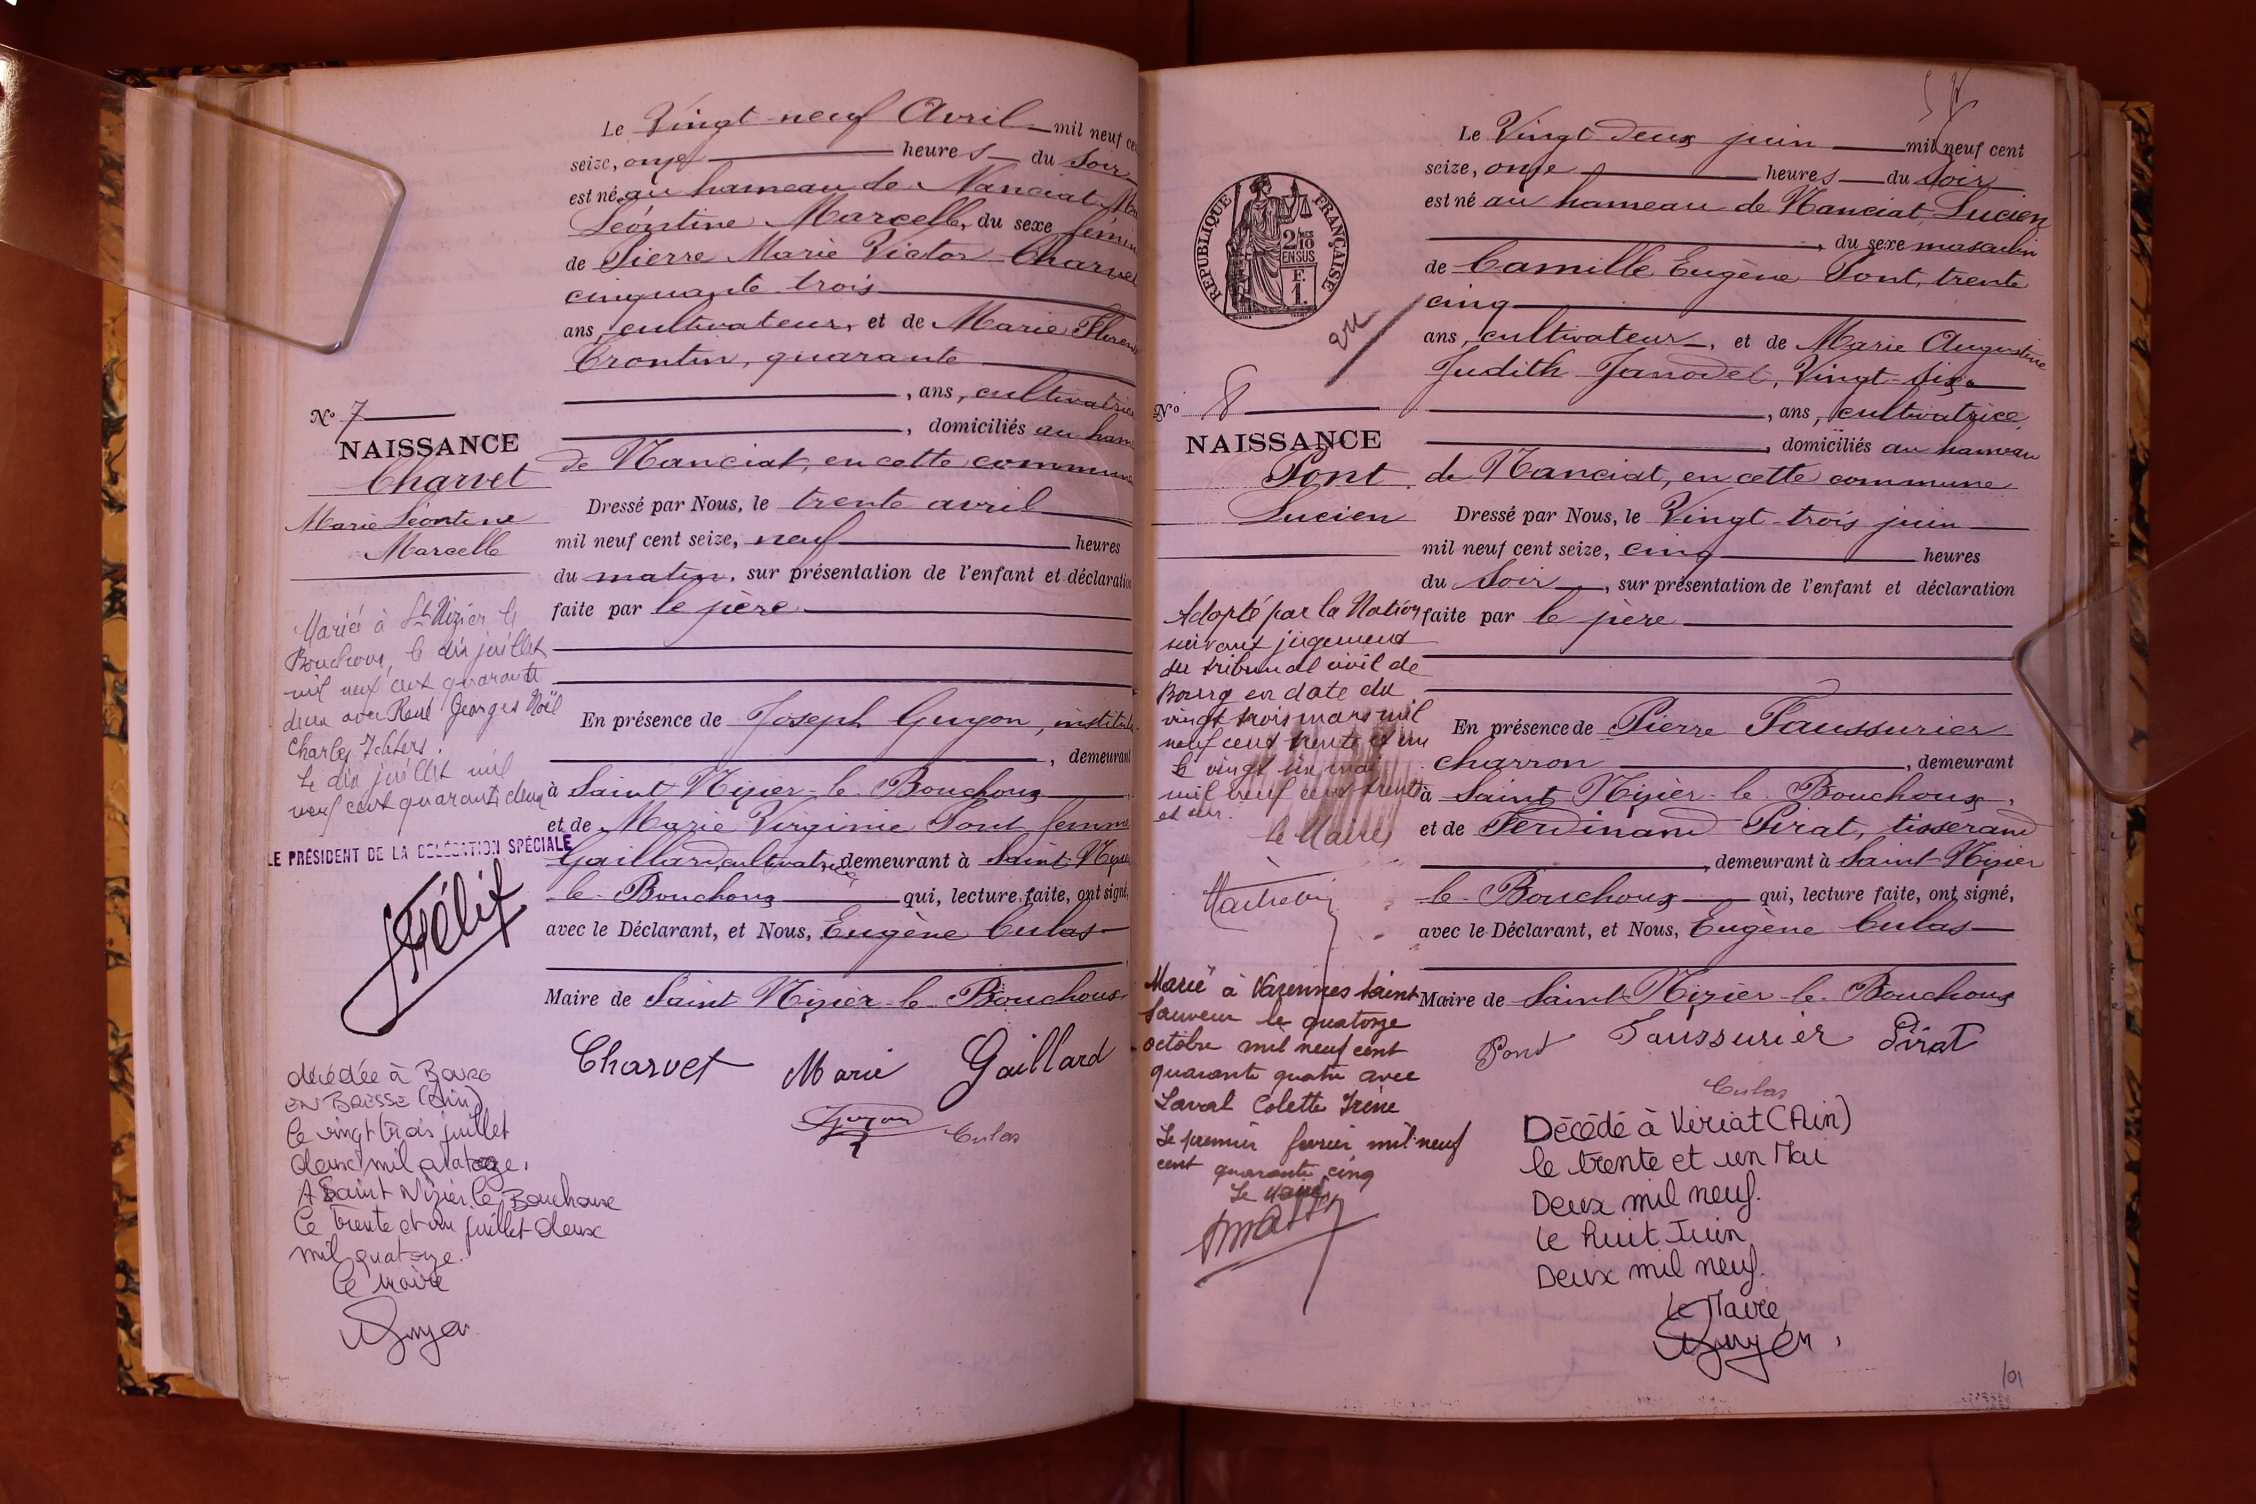 Le Vingt-neuf Avril mil neuf ce
seize, onze heures du Soir
est né au hameau de Nanciat Ma
Léontine Marcelle, du sexe femin
de Pierre Marie Victor Charvet
cinquante trois
ans, cultivateur, et de Marie Floren
Trontin, quarante
, ans, cultivatrice
, domiciliés au ham
de Nanciat, en cette commune
Dressé par Nous, le trente avril
mil neuf cent seize, neuf heures
du matin, sur présentation de l'enfant et déclaration
faite par le père
En présence de Joseph Guyon, institut
, demeurant
à Saint Nizier-le-Bouchoux
et de Marie Virginie Pont femme
Gaillard, cultivatrice demeurant à Saint Nizier
le-Bouchoux qui, lecture faite, ont signé,
avec le Déclarant, et Nous, Eugène Culas
Maire de Saint Nizier-le-Bouchoux
Charvet Marie Gaillard
Guyon Culas
N° 7
NAISSANCE
Charvet
Marie Léontine
Marcelle
Mariée à St Nizier le
Bouchoux, le dix juillet
mil neuf cent quarante
deux avec René Georges Noël
Charles
Le dix juillet mil
neuf cent quarante deux
LE PRÉSIDENT DE LA DÉLÉGATION SPÉCIALE
Félix
décédée à BOURG
EN BRESSE (Ain)
le vingt trois juillet
deux mil quatorze.
A Saint Nizier le Bouchoux
le trente et un juillet deux
mil quatorze.
Le Maire
RÉPUBLIQUE FRANÇAISE
2/10
EN SUS
F.
1.
Le Vingt deux juin mil neuf cent
seize, onze heures du Soir
est né au hameau de Nanciat Lucien
, du sexe masculin
de Camille Eugène Pont, trente
cinq
ans, cultivateur, et de Marie Augustine
Judith Janodet, Vingt-six
, ans, cultivatrice,
, domiciliés au hameau
de Nanciat, en cette commune
Dressé par Nous, le Vingt-trois juin
mil neuf cent seize, cinq heures
du Soir, sur présentation de l'enfant et déclaration
faite par le père
En présence de Pierre Faussurier
charron, demeurant
à Saint Nizier-le-Bouchoux,
et de Ferdinand Pirat, tisserand
, demeurant à Saint-Nizier
le-Bouchoux qui, lecture faite, ont signé,
avec le Déclarant, et Nous, Eugène Culas
Maire de Saint Nizier-le-Bouchoux
Pont Faussurier Pirat
Culas
N° 8
NAISSANCE
Pont
Lucien
Adopté par la Nation
suivant jugement
du tribunal civil de
Bourg en date du
vingt trois mars mil
neuf cent trente et un
Le vingt six mai
mil neuf cent trente
et un.
Le Maire
Marié à Varennes Saint
Sauveur le quatorze
octobre mil neuf cent
quarante quatre avec
Laval Colette Irène
Le premier février mil neuf
cent quarante cinq
Le Maire
Décédé à Viriat (Ain)
le trente et un Mai
Deux mil neuf.
Le huit Juin
Deux mil neuf.
Le Maire
101